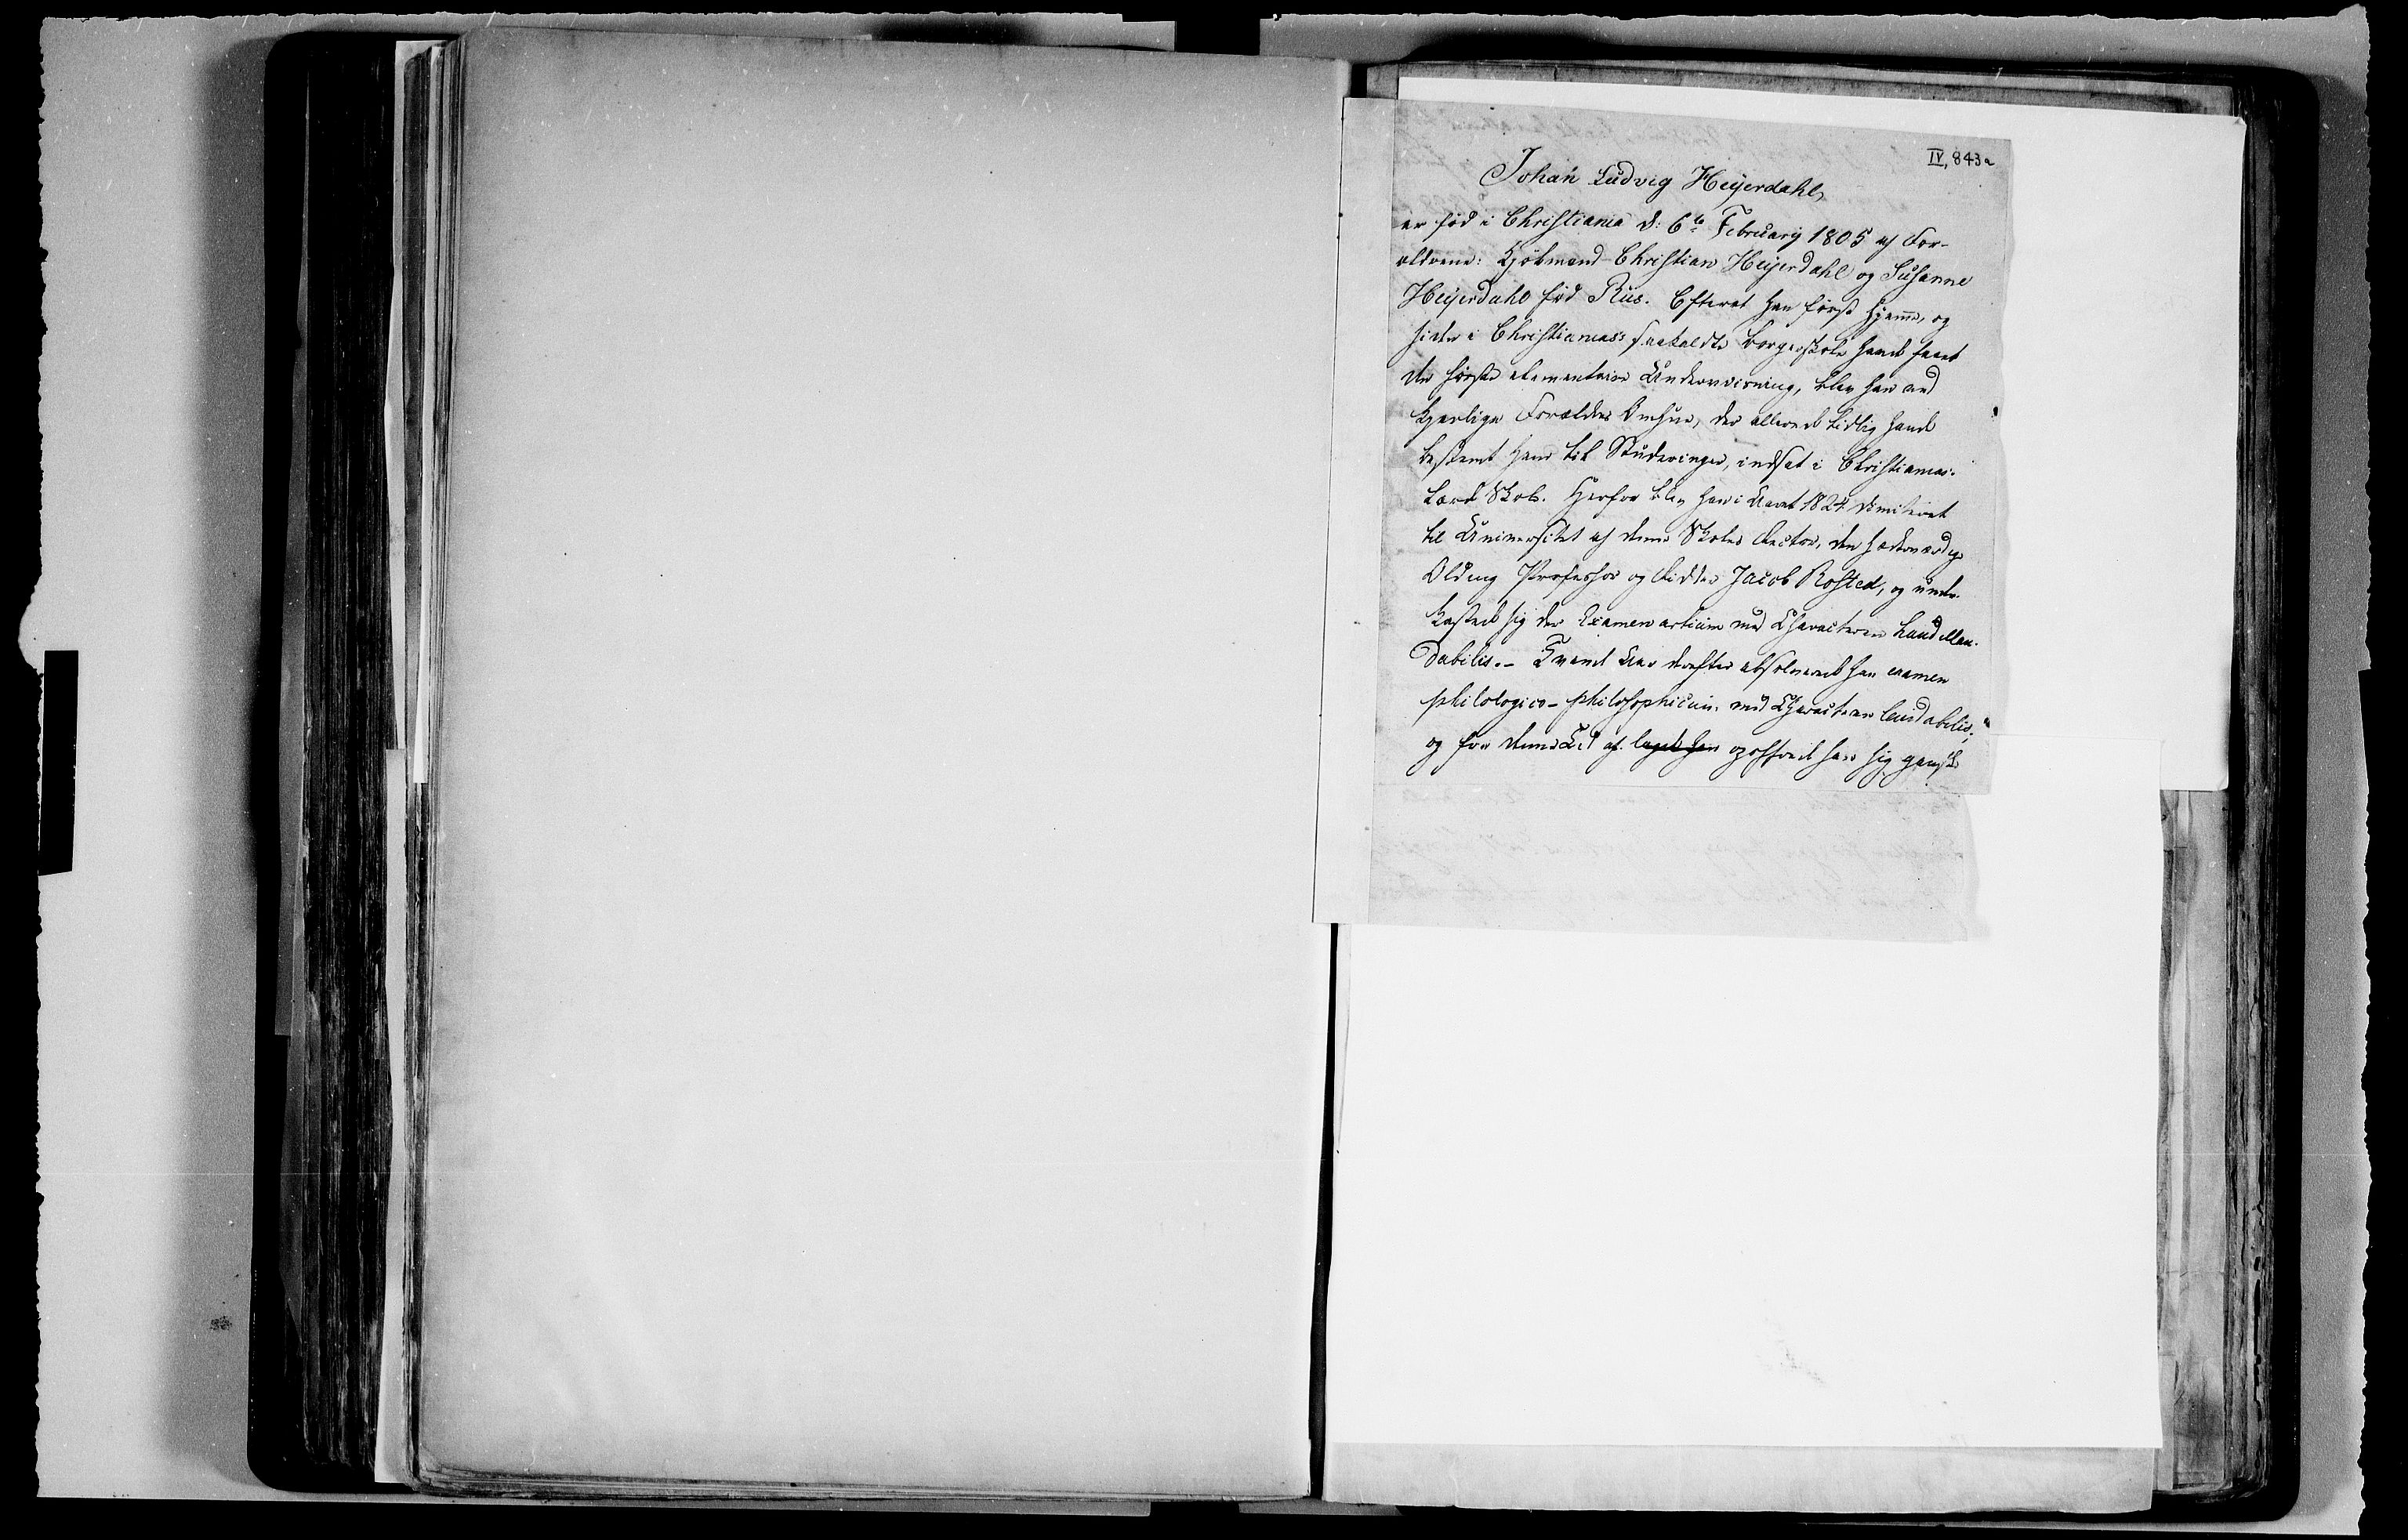 IV, 843a
Johan̄ Ludvig Heyerdahl,
er fød i Christiania d: 6te Februarÿ 1805 af For-
ældrene: Kjøbmand Christian Heÿerdahl og Susanne
Heÿerdahl fød Rus. Efterat han først hjem̄e, og
siden i Christianias saakaldte Borgerskole havde faaet
den første elementaire Underviisning, blev han ved
kjerlige Forældres Omhue, der allerede tidlig havde
bestemt ham til Studeringer, indsat i Christianias
lærde Skole. Herfra blev han i Aaret 1824 dimiteret
til Universitet af denne Skoles Rector, den hæderværdige
Olding Professor og Ridder Jacob Rosted, og under-
kastede sig der Examen artium med Characteren haud illau-
dabilis. – Tvende Aar derefter absolverede han examen
philologico-philosophicum med Characteren laudabilis;
og fra denne Tid af lagde han opoffrede han sig ganske